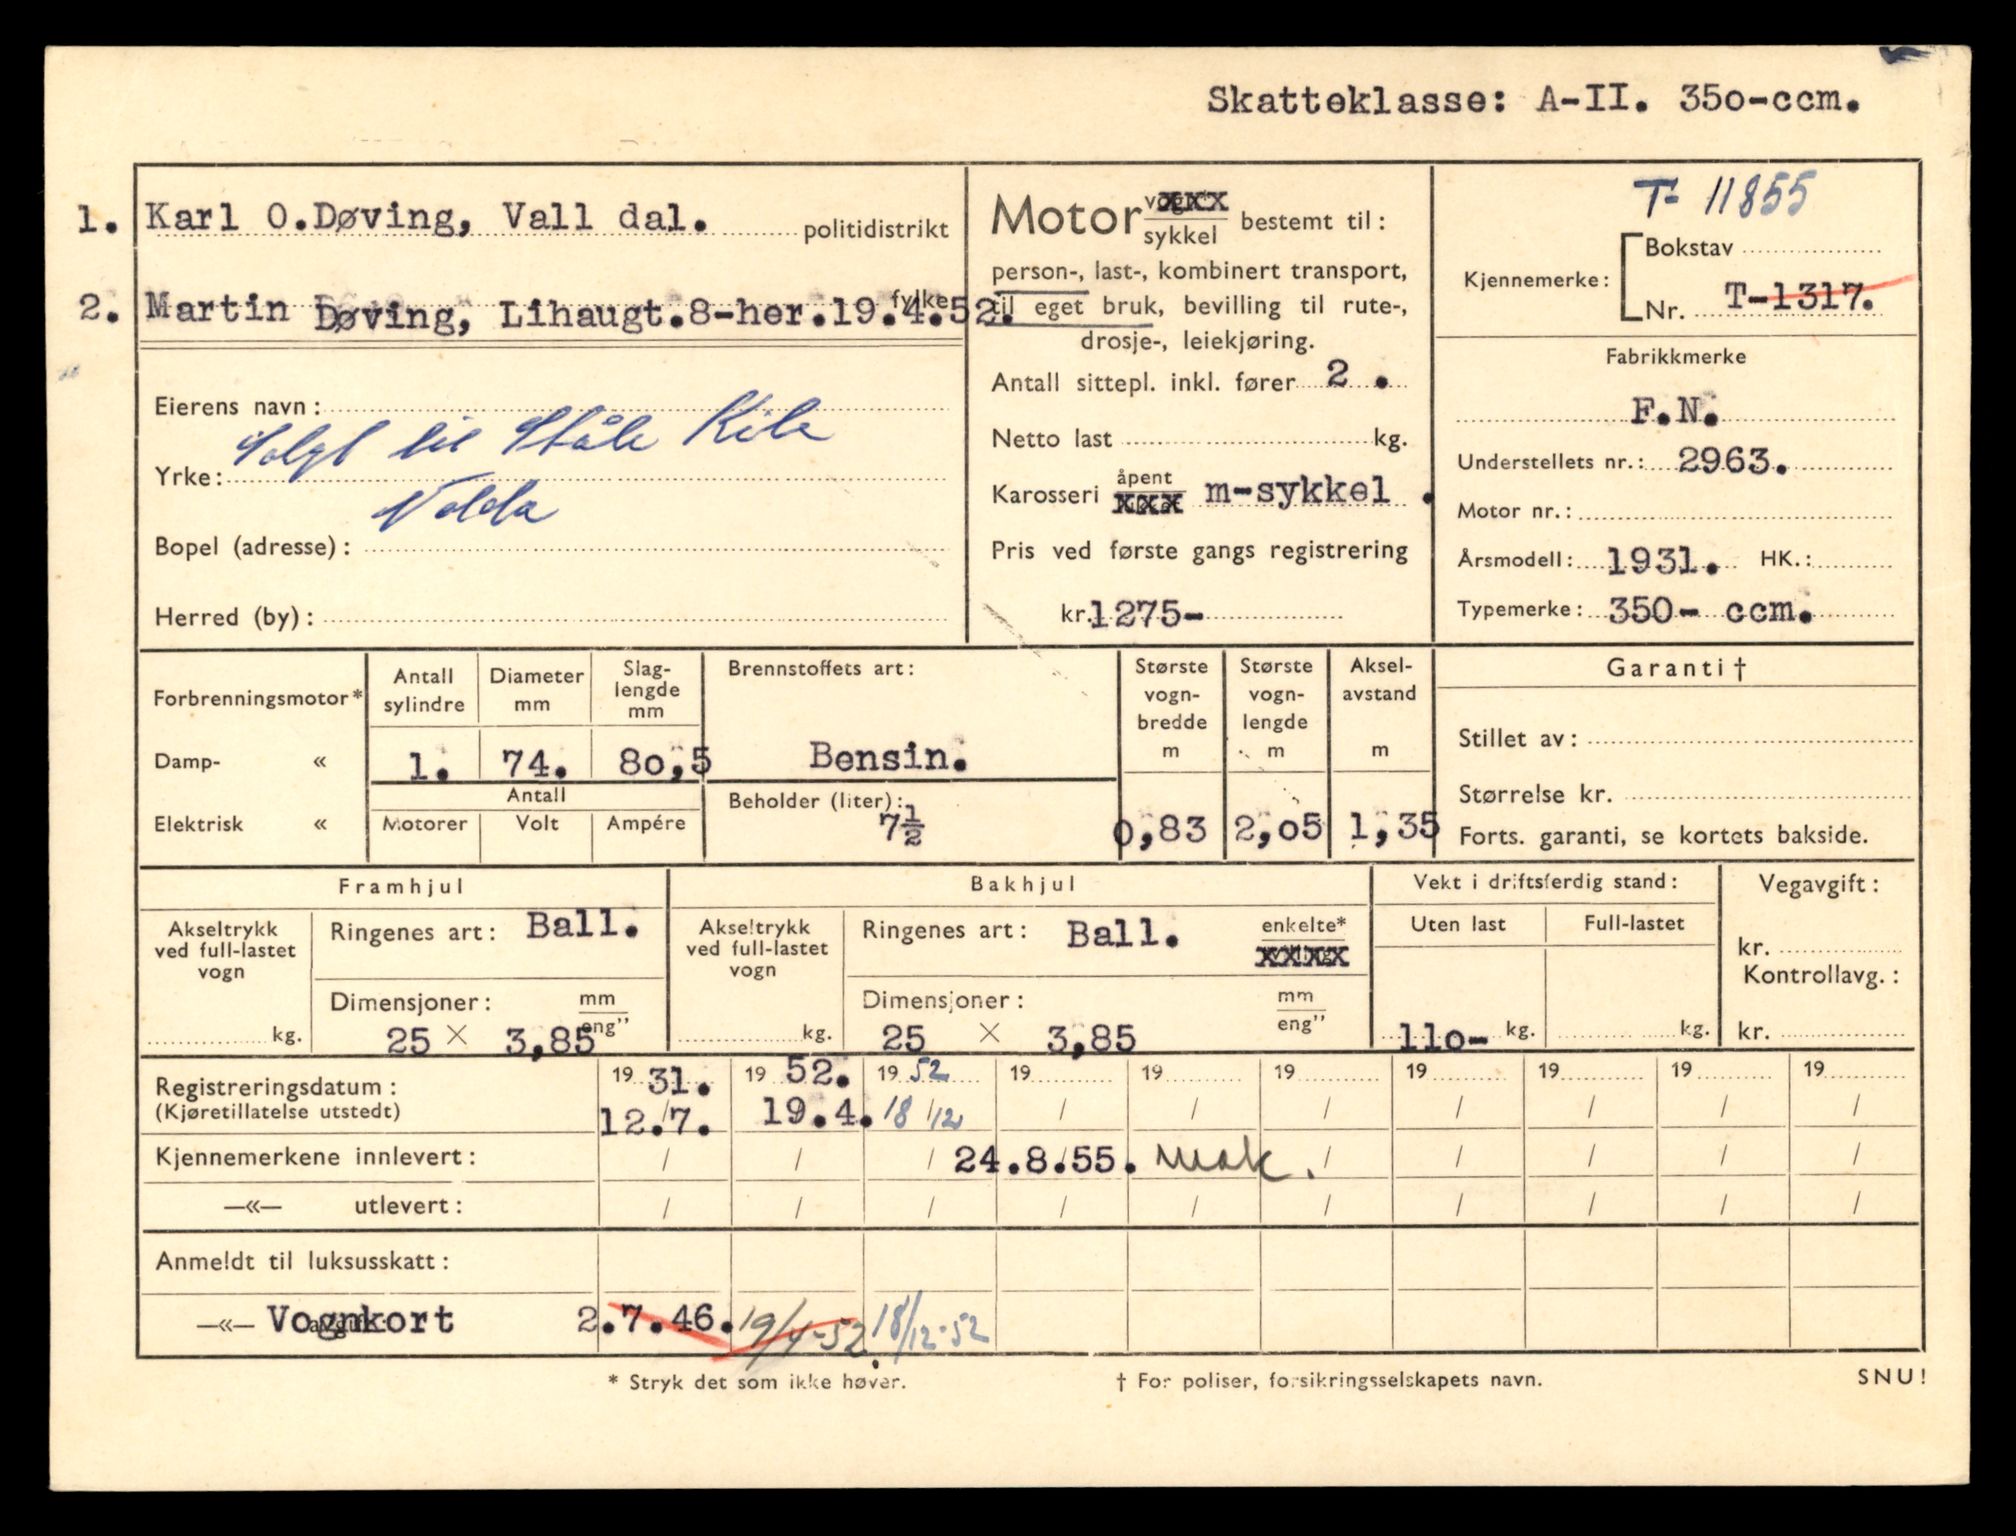 Skatteklasse: A-II. 350-ccm.
1. Karl O.Døving, Vall dal. politidistrikt
2. Martin Døving, Lihaugt.8-her.19.4.52. fylke
Eierens navn:
Solgt til Ståle Kile
Yrke:
Volda
Bopel (adresse):
Herred (by):
Motor vogn xxx
sykkel bestemt til:
person-, last-, kombinert transport,
til eget bruk, bevilling til rute-,
drosje-, leiekjøring.
Antall sittepl. inkl. fører 2 .
Netto last kg.
Karosseri åpent xxx m-sykkel .
Pris ved første gangs registrering
kr. 1275-
T- 11855
Kjennemerke: Bokstav
Nr. T-1317.
Fabrikkmerke
F.N.
Understellets nr.: 2963.
Motor nr.:
Årsmodell: 1931. HK.:
Typemerke: 350- ccm.
Forbrenningsmotor*
Damp- «
Elektrisk «
Antall sylindre
1.
Diameter mm
74.
Slag-lengde mm
80,5
Antall
Motorer Volt Ampére
Brennstoffets art:
Bensin.
Beholder (liter):
7 1/2
Største vogn-bredde m
0,83
Største vogn-lengde m
2,05
Aksel-avstand m
1,35
Garanti †
Stillet av:
Størrelse kr.
Forts. garanti, se kortets bakside.
Framhjul
Akseltrykk ved full-lastet vogn
kg.
Ringenes art: Ball.
Dimensjoner: mm
eng"
25 × 3,85
Bakhjul
Akseltrykk ved full-lastet vogn
kg.
Ringenes art: Ball. enkelte*
xxxx
Dimensjoner: mm
eng"
25 × 3,85
Vekt i driftsferdig stand:
Uten last Full-lastet
110- kg. kg.
Vegavgift:
kr.
Kontrollavg.:
kr.
Registreringsdatum: 19 31. 19 52. 19 52 19 19 19 19 19 19 19
(Kjøretillatelse utstedt) 12.7. 19.4. 18/12 / / / / / / /
Kjennemerkene innlevert: / / / 24.8.55. mak. / / / / /
—«— utlevert: / / / / / / / / / /
Anmeldt til luksusskatt:
—«— Vognkort 2.7.46. 19/4-52. 18/12-52
* Stryk det som ikke høver. † For poliser, forsikringsselskapets navn. SNU!